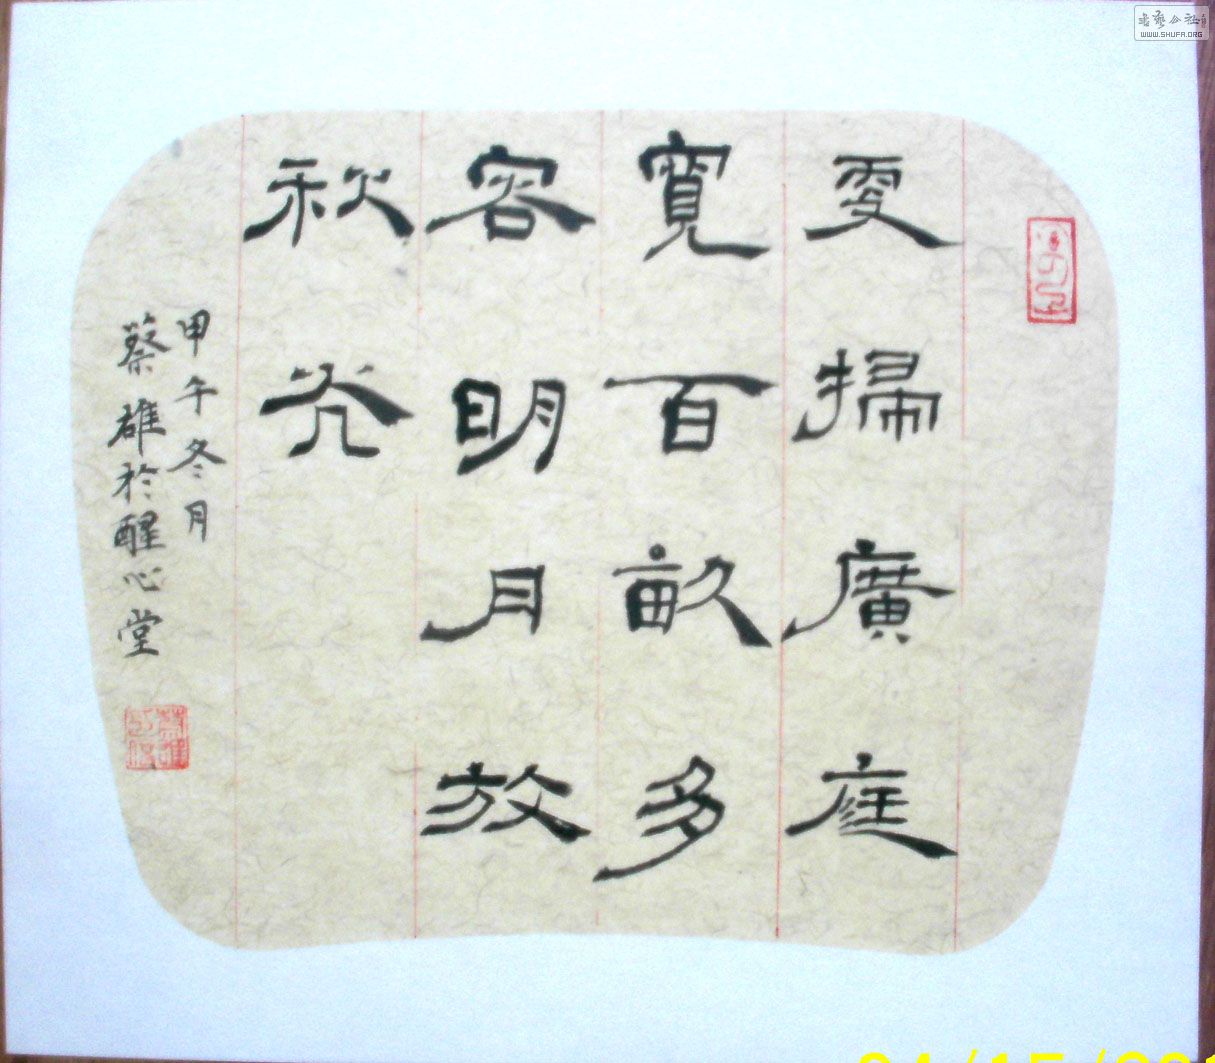 更掃廣庭
寬百畝多
容明月放
秋光
甲午冬月
蔡雄於醒心堂
書藝公社
WWW.SHUFA.ORG